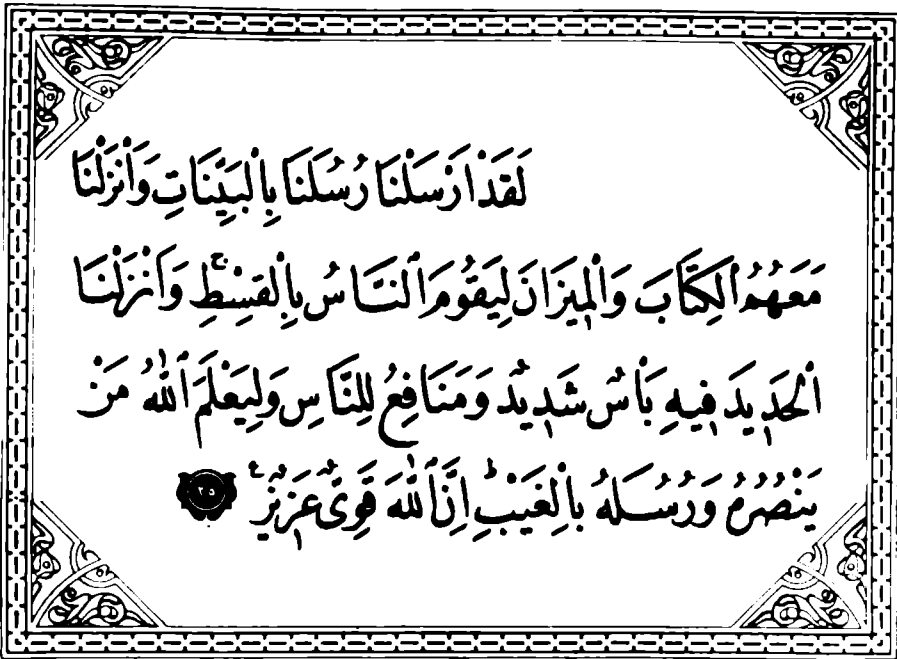 لَقَدْ اَرْسَلْنَا رُسُلَنَا بِالْبَيِّنَاتِ وَاَنْزَلْنَا
مَعَهُمُ ٱلْكِتَابَ وَالْمِيزَانَ لِيَقُومَ ٱلنَّاسُ بِالْقِسْطِۚ وَاَنْزَلْنَا
ٱلْحَدِيدَ فِيهِ بَاْسٌ شَدِيدٌ وَمَنَافِعُ لِلنَّاسِ وَلِيَعْلَمَ ٱللّٰهُ مَنْ
يَنْصُرُهُ وَرُسُلَهُ بِالْغَيْبِؕ اِنَّ ٱللّٰهَ قَوِىٌّ عَزِيزٌ ﴿٢٥﴾